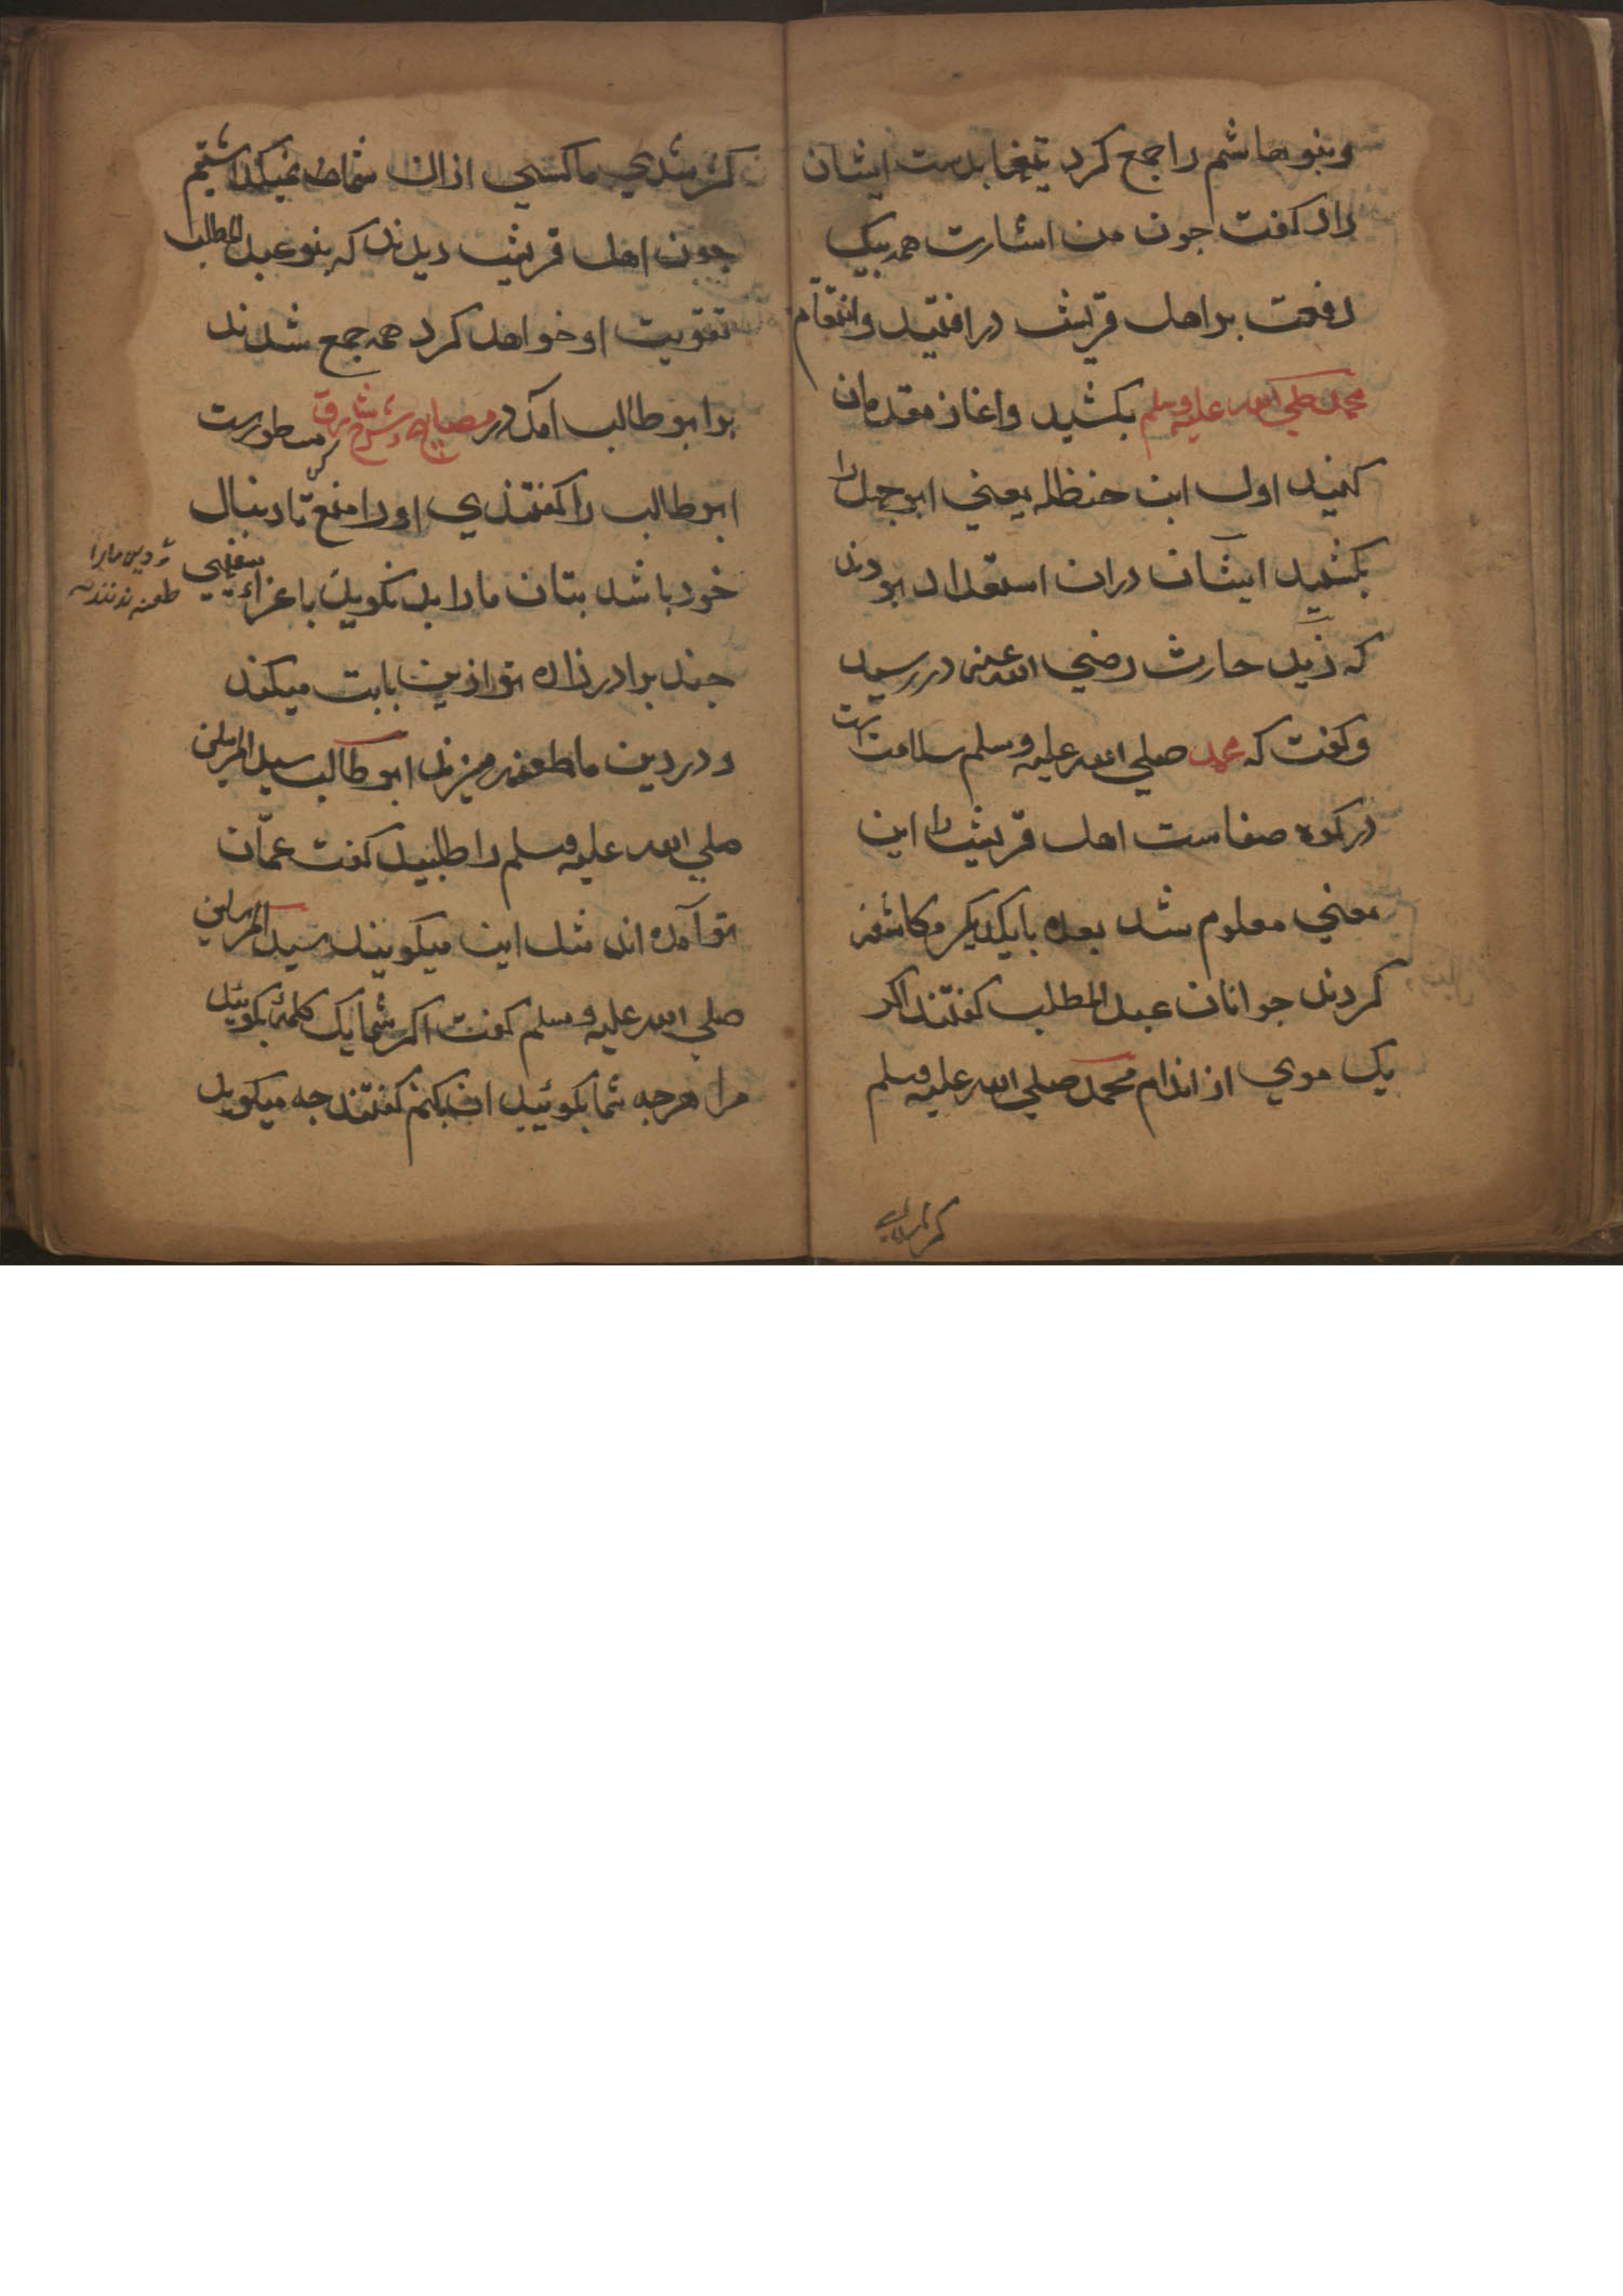 وبنو هاشم را جمع كرد تیغها بدست ایشان
داد كفت جون من اشارت همه بیک
دفعت بر اهل قریش در افتید وانتقام
محمد صلی الله علیه وسلم بكشید واغاز مقدمان
كنید اول ابن حنظله یعنی ابو جهل را
بكشید ایشان دران استعداد بودند
كه زید حارث رضی الله عنه در رسید
وكفت كه محمد صلی الله علیه وسلم سلامت است
در كوه صفاست اهل قریش را این
معنی معلوم شد بعده بایكدیكر مكاشفه
كردند جوانان عبد المطلب كفتند اكر
یک موی از اندام محمد صلی الله علیه وسلم
كژ شدی ما كسی ازان شمارا نمیكذاشتیم
جون اهل قریش دیدند كه بنو عبد المطلب
تقویت او خواهد كرد همه جمع شدند
برابو طالب امد در مصابیح وشرح مشارق مسطورست
ابو طالب را كفتندی اورا منع كن تا دنبال
خود باشد بتان مارا بد نكوید با عزاء سفهی
و دین مارا
طعنه نزند كه
جند برادر زاده تو ازین بابت میكند
ودر دین ما طعنه میزند ابو طالب سید المرسلین
صلی الله علیه وسلم را طلبید كفت عمّان
تو آمده اند مثل این میكویند سید المرسلین
صلی الله علیه وسلم كفت اكر شما یک كلمهٔ بكوئید
مرا هرجه شما بكوئید ان بكنم كفتند جه میكوید